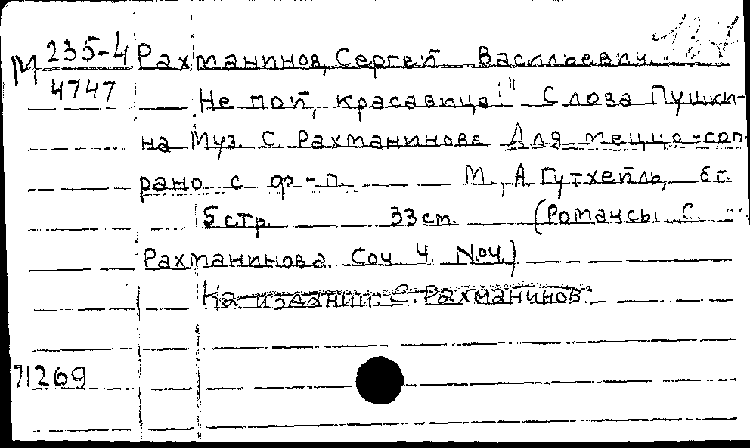 М 235-4 Рахманинов, Сергей Васильевич.
4747 Не пой, красавица!" Слова Пушки-
на Муз. С. Рахманинова Для меццо-соп
рано с ф-п. М., А. Гутхейль, б.г.
5 стр. 33 см. (Романсы С.
Рахманинова Соч 4 №4)
На издании: С. Рахманинов.
71269